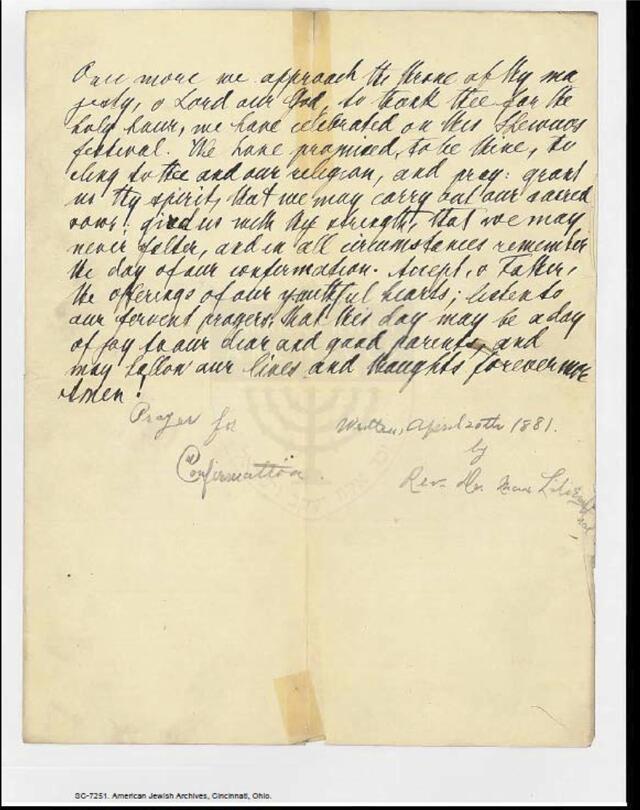 Once more we approach the throne of thy ma
jesty, o Lord our God, to thank thee for the
holy hour, we have celebrated on this Shewuos
festival. We have promised, to be thine, to
cling to thee and our religion, and pray: grant
us thy spirit, that we may carry out our sacred
vows; gird us with thy strength, that we may
never falter, and in all circumstances remember
the day of our confirmation. Accept, o Father,
the offerings of our youthful hearts; listen to
our fervent prayers, that this day may be a day
of joy to our dear and good parents, and
may hallow our lives and thoughts forevermore
Amen!
Prayer for
Confirmation.
Written, April 20th 1881.
by
Rev. Dr. Max Lilienthal
SC-7251. American Jewish Archives, Cincinnati, Ohio.